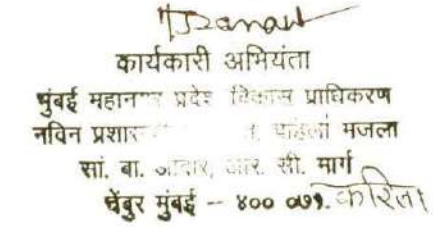 कार्यकारी अभियंता
मुंबई महानगर प्रदेश विकास प्राधिकरण
नविन प्रशास पहिला मजला
सां. बा. आवार, आर. सी. मार्ग
चेंबुर मुंबई -- ४०० ०७१. करिता